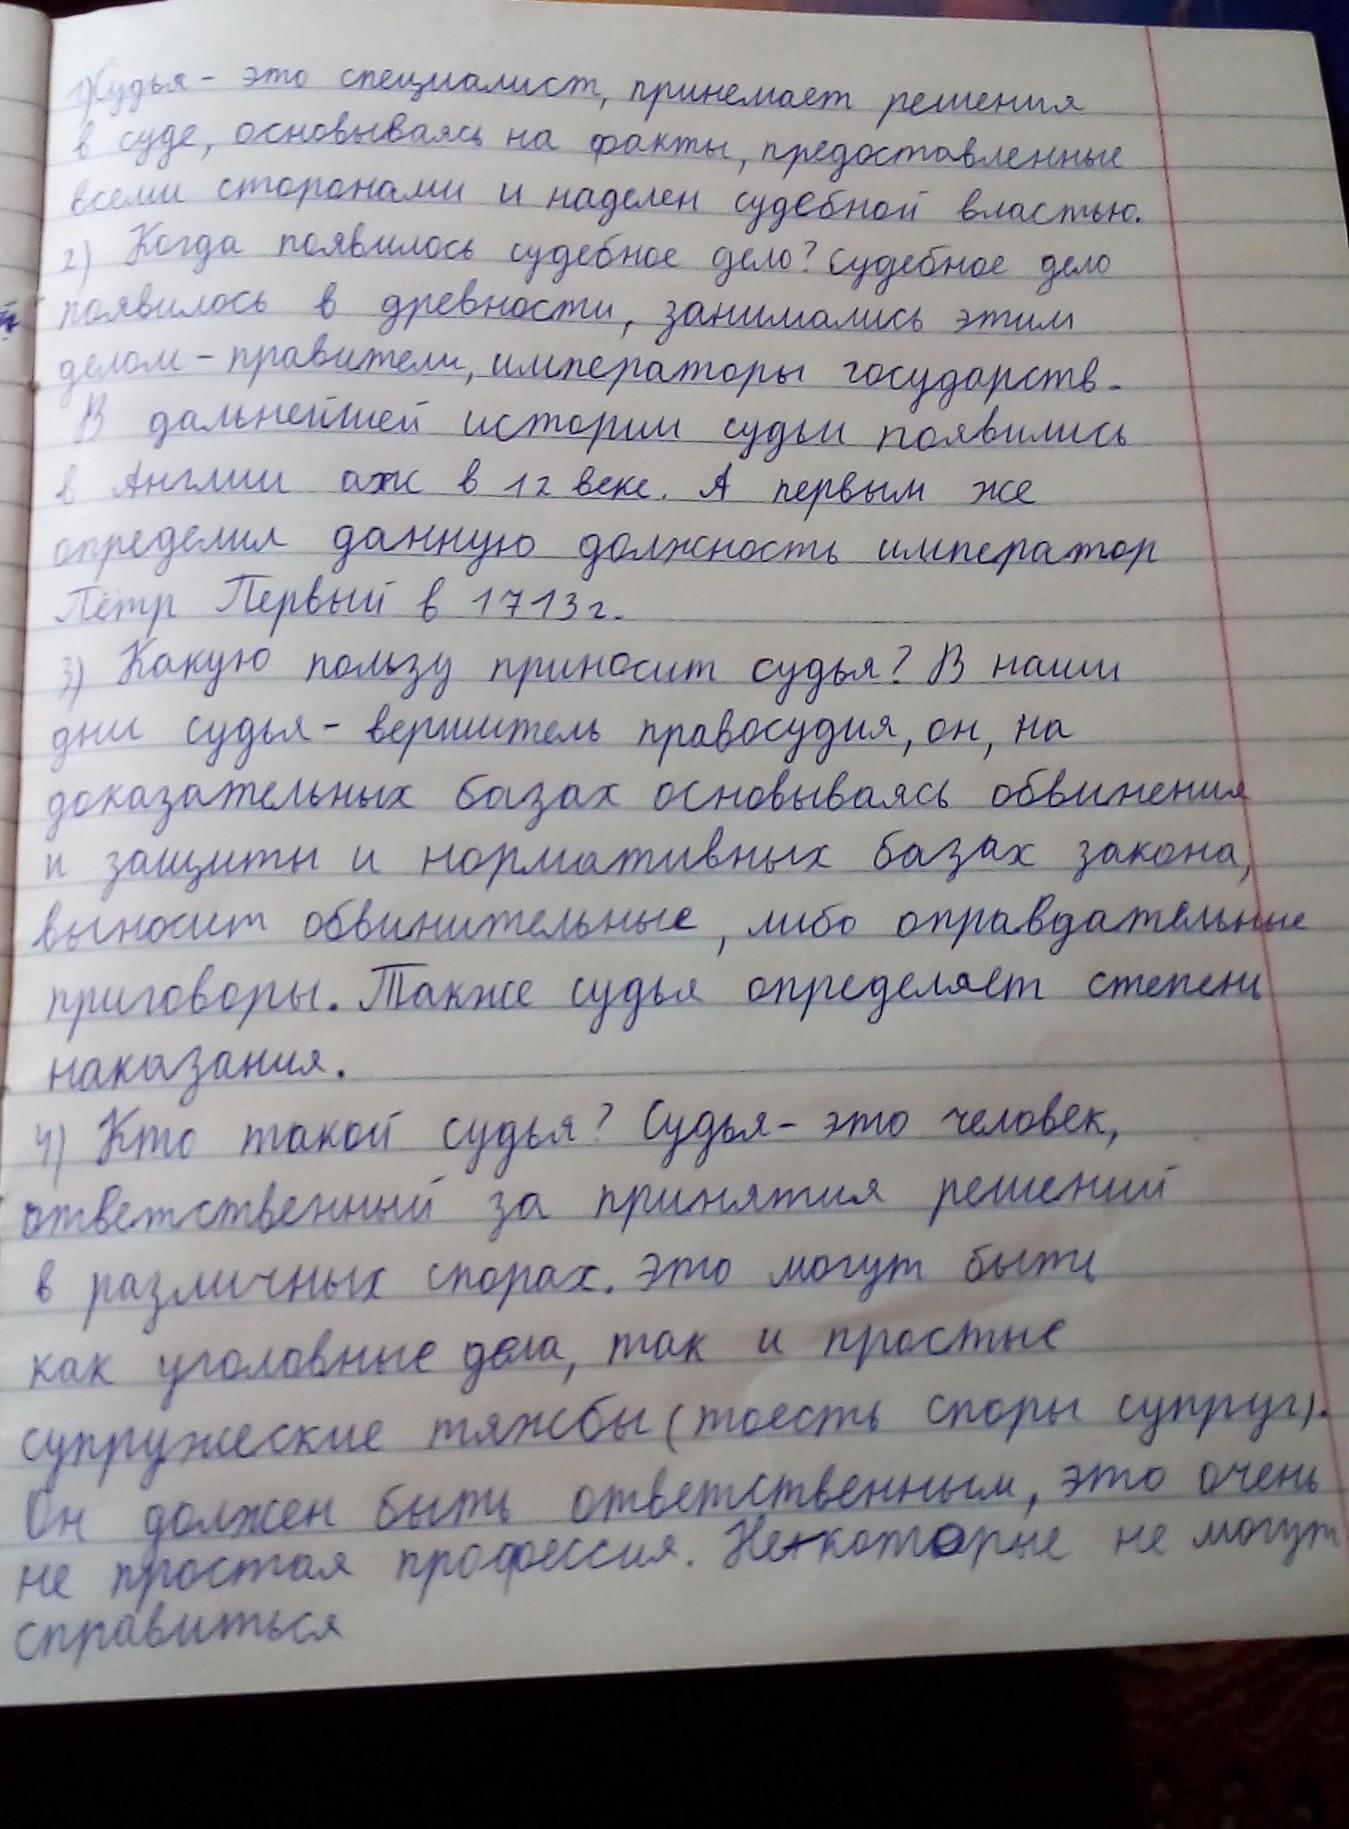 1) Судья - это специалист, принемает решения
в суде, основываясь на факты, предоставленные
всеми сторонами и наделен судебной властью.
2) Когда появилось судебное дело? Судебное дело
появилось в древности, занимались этим
делом - правители, императоры государств.
В дальнейшей истории судьи появились
в Англии аж в 12 веке. А первым же
определил данную должность император
Пётр Первый в 1713 г.
3) Какую пользу приносит судья? В наши
дни судья - вершитель правосудия, он, на
доказательных базах основываясь обвинения
и защиты и нормативных базах закона,
выносит обвинительные, либо оправдательные
приговоры. Также судья определяет степень
наказания.
4) Кто такой судья? Судья - это человек,
ответственный за принятия решений
в различных спорах. Это могут быть
как уголовные дела, так и простые
супружеские тяжбы (тоесть споры супруг).
Он должен быть ответственным, это очень
не простая профессия. Некоторые не могут
справиться